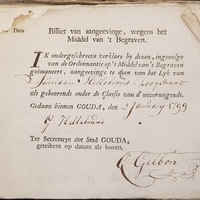 Billiet van aangeevinge, wegens het
Middel van 't Begraven.
IK ondergeschreeve verklare by deven, ingevolge
van de Ordonnantie op 't Middel van 't Begraven
geëmaneert, aangeevinge te doen van het Lyk van
Hillebrand
als gehoorende onder de Classe van d'onvermogende.
Gedaan binnen GOUDA, den 2 January 1799
G Hillebrand
Ter Secretarye der Stad GOUDA,
geteikent op datum als boven.